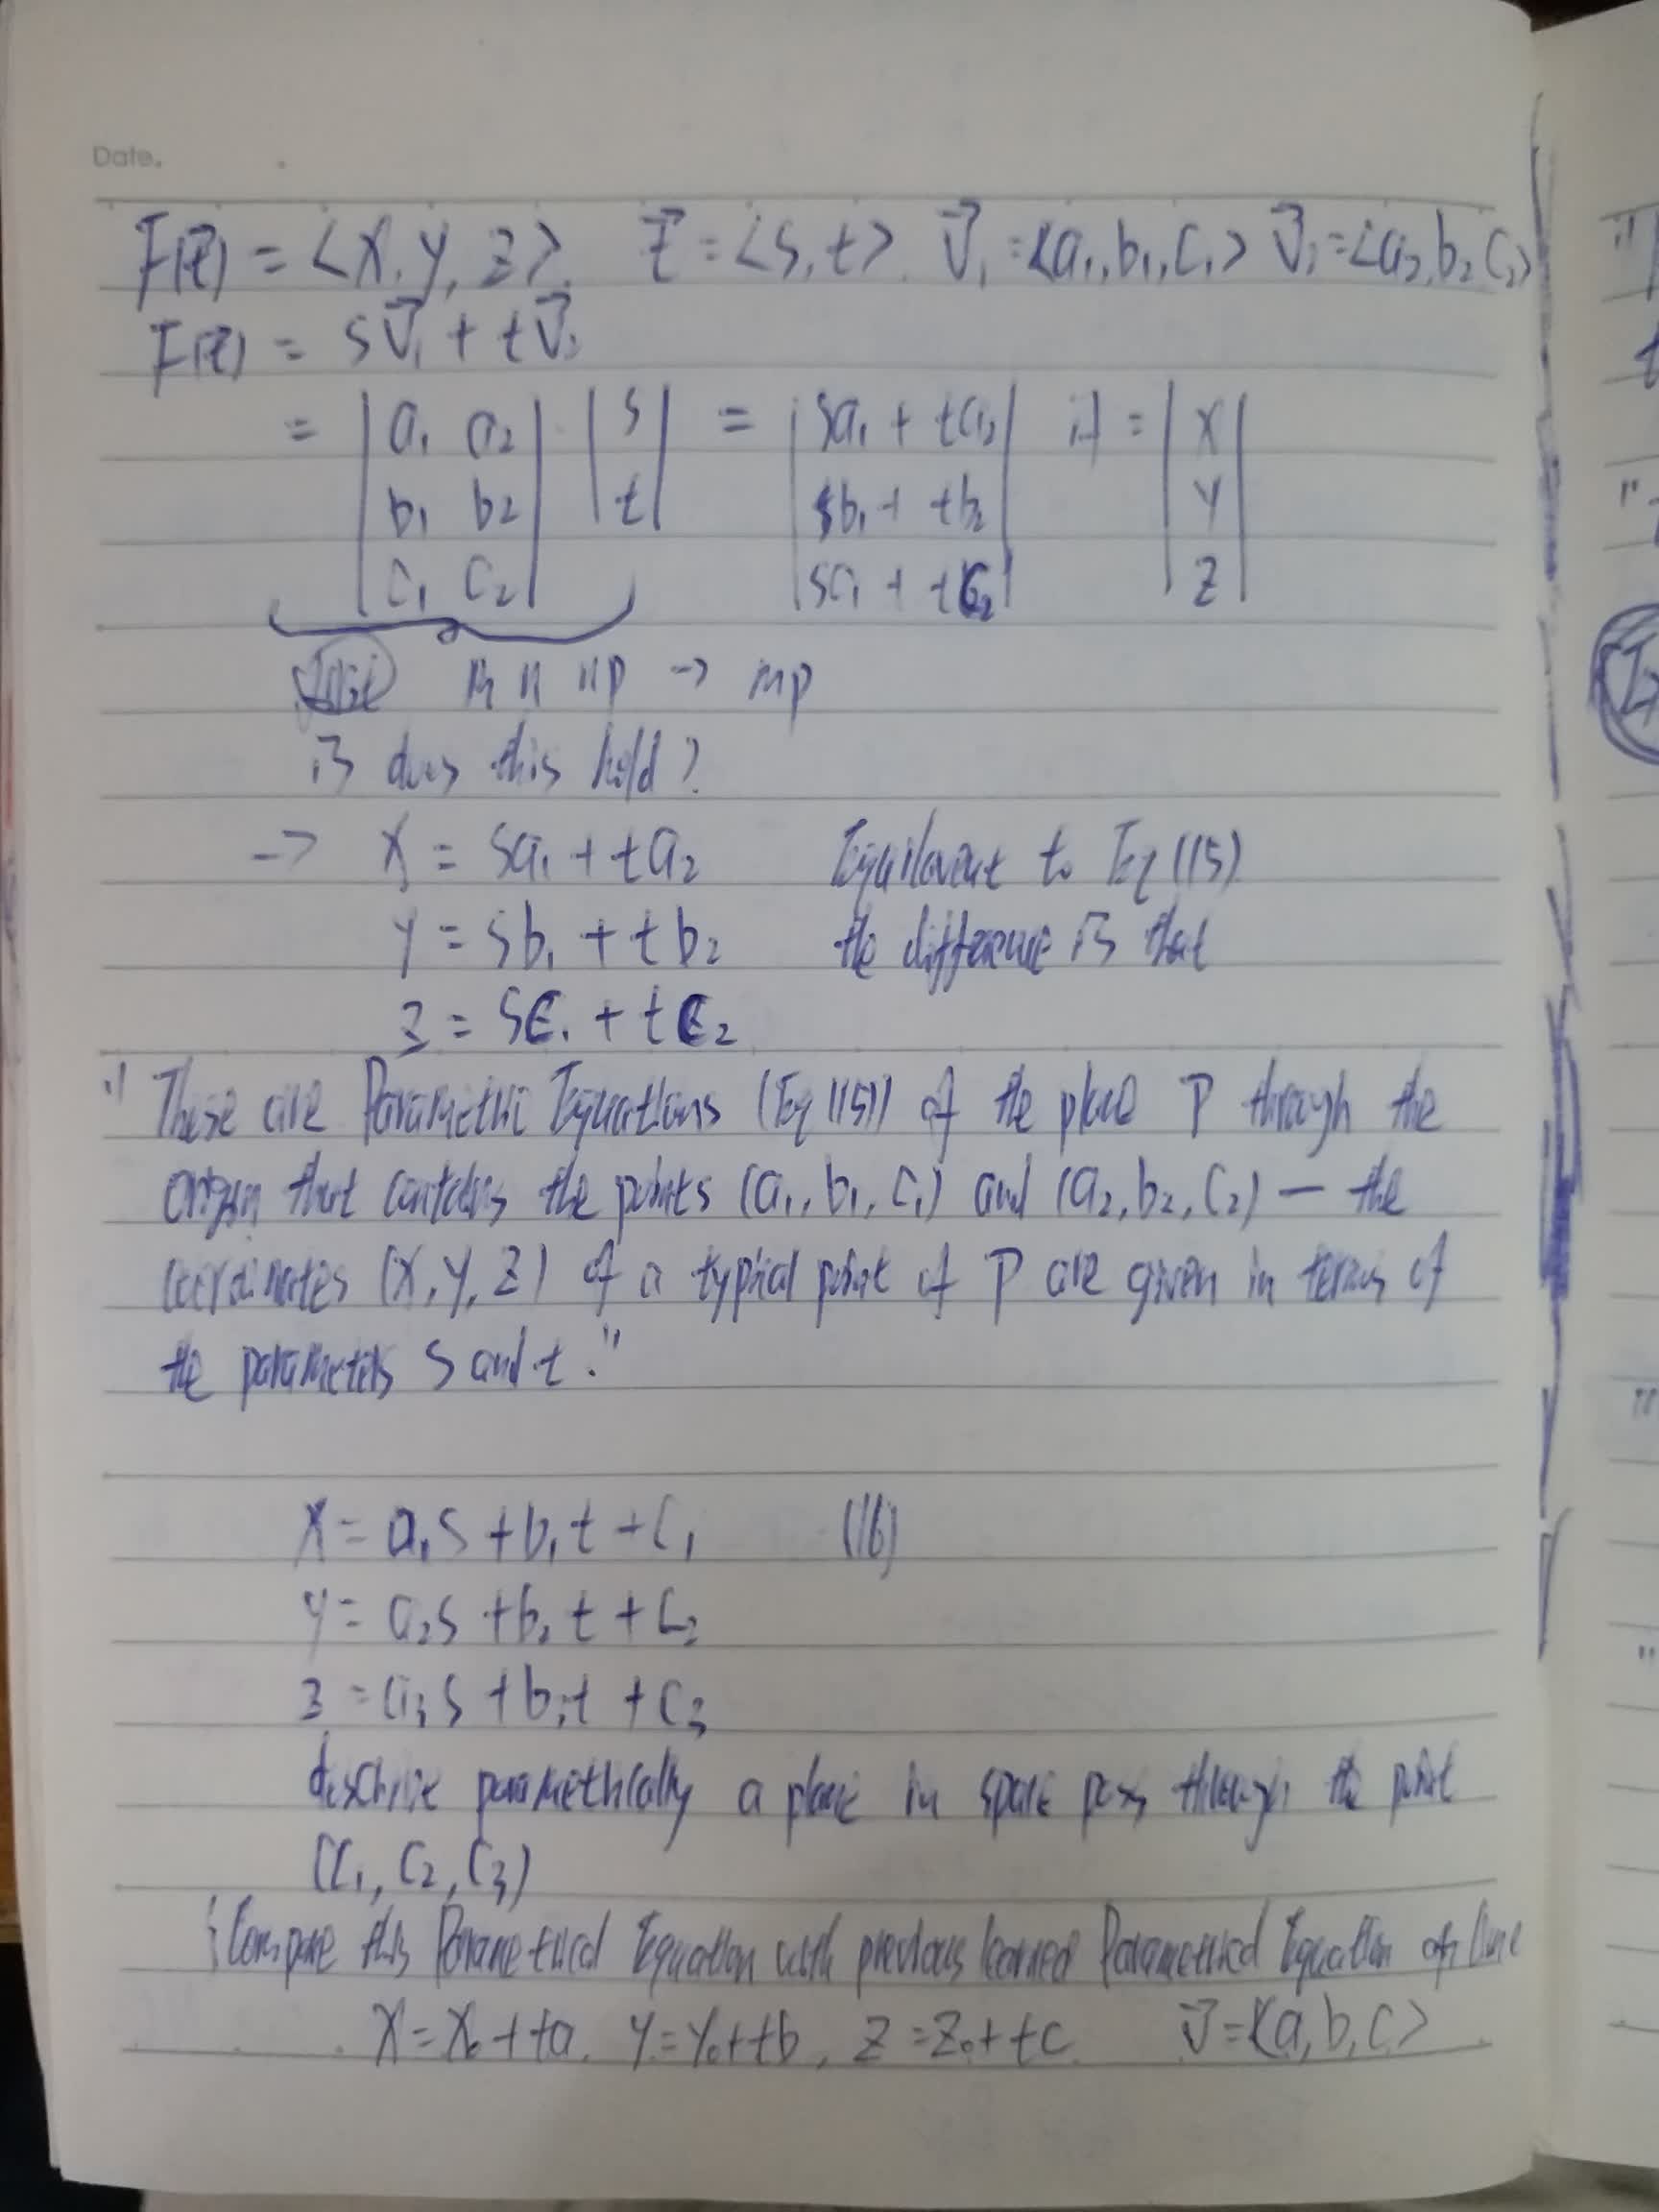 Date.
F(z⃗) = <x, y, z>. z⃗ = <s, t>. v⃗₁ = <a₁, b₁, c₁> v⃗₂ = <a₂, b₂, c₂>
F(z⃗) = sv⃗₁ + tv⃗₂
= |a₁ a₂| |s| = |sa₁ + ta₂| = |x|
|b₁ b₂| |t| |sb₁ + tb₂| |y|
|c₁ c₂| |sc₁ + tc₂| |z|
m n n p → mp
is does this hold?
→ x = sa₁ + ta₂ Equilavent to Eq (15)
y = sb₁ + tb₂ the difference is that
z = sc₁ + tc₂
"These are Parametric Equations (Eq (15)) of the plane P through the
origin that contains the points (a₁, b₁, c₁) and (a₂, b₂, c₂) — the
coordinates (x, y, z) of a typical point of P are given in terms of
the parameters s and t."
x = a₁s + b₁t + c₁ (16)
y = a₂s + b₂t + c₂
z = a₃s + b₃t + c₃
describe parametrically a plane in space pass through the point
(c₁, c₂, c₃)
Compare this Parametrical Equation with previous learned Parametrical Equation of line
x = x₀ + ta, y = y₀ + tb, z = z₀ + tc v⃗ = <a, b, c>